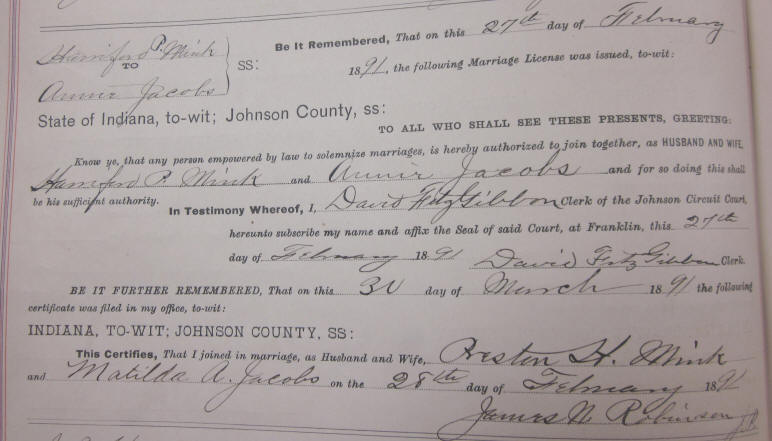 Hanniford P. Mink
TO
Annie Jacobs
SS:
Be It Remembered, That on this 27th day of February
1891, the following Marriage License was issued, to-wit:
State of Indiana, to-wit; Johnson County, ss:
TO ALL WHO SHALL SEE THESE PRESENTS, GREETING:
Know ye, that any person empowered by law to solemnize marriages, is hereby authorized to join together, as HUSBAND AND WIFE,
Hanniford P. Mink and Annie Jacobs and for so doing this shall
be his sufficient authority.
In Testimony Whereof, I, David FitzGibbon Clerk of the Johnson Circuit Court,
hereunto subscribe my name and affix the Seal of said Court, at Franklin, this 27th
day of February 1891 David FitzGibbon Clerk.
BE IT FURTHER REMEMBERED, That on this 30 day of March 1891 the following
certificate was filed in my office, to-wit:
INDIANA, TO-WIT; JOHNSON COUNTY, SS:
This Certifies, That I joined in marriage, as Husband and Wife, Preston H. Mink
and Matilda A. Jacobs on the 28th day of February 1891
James N Robinson